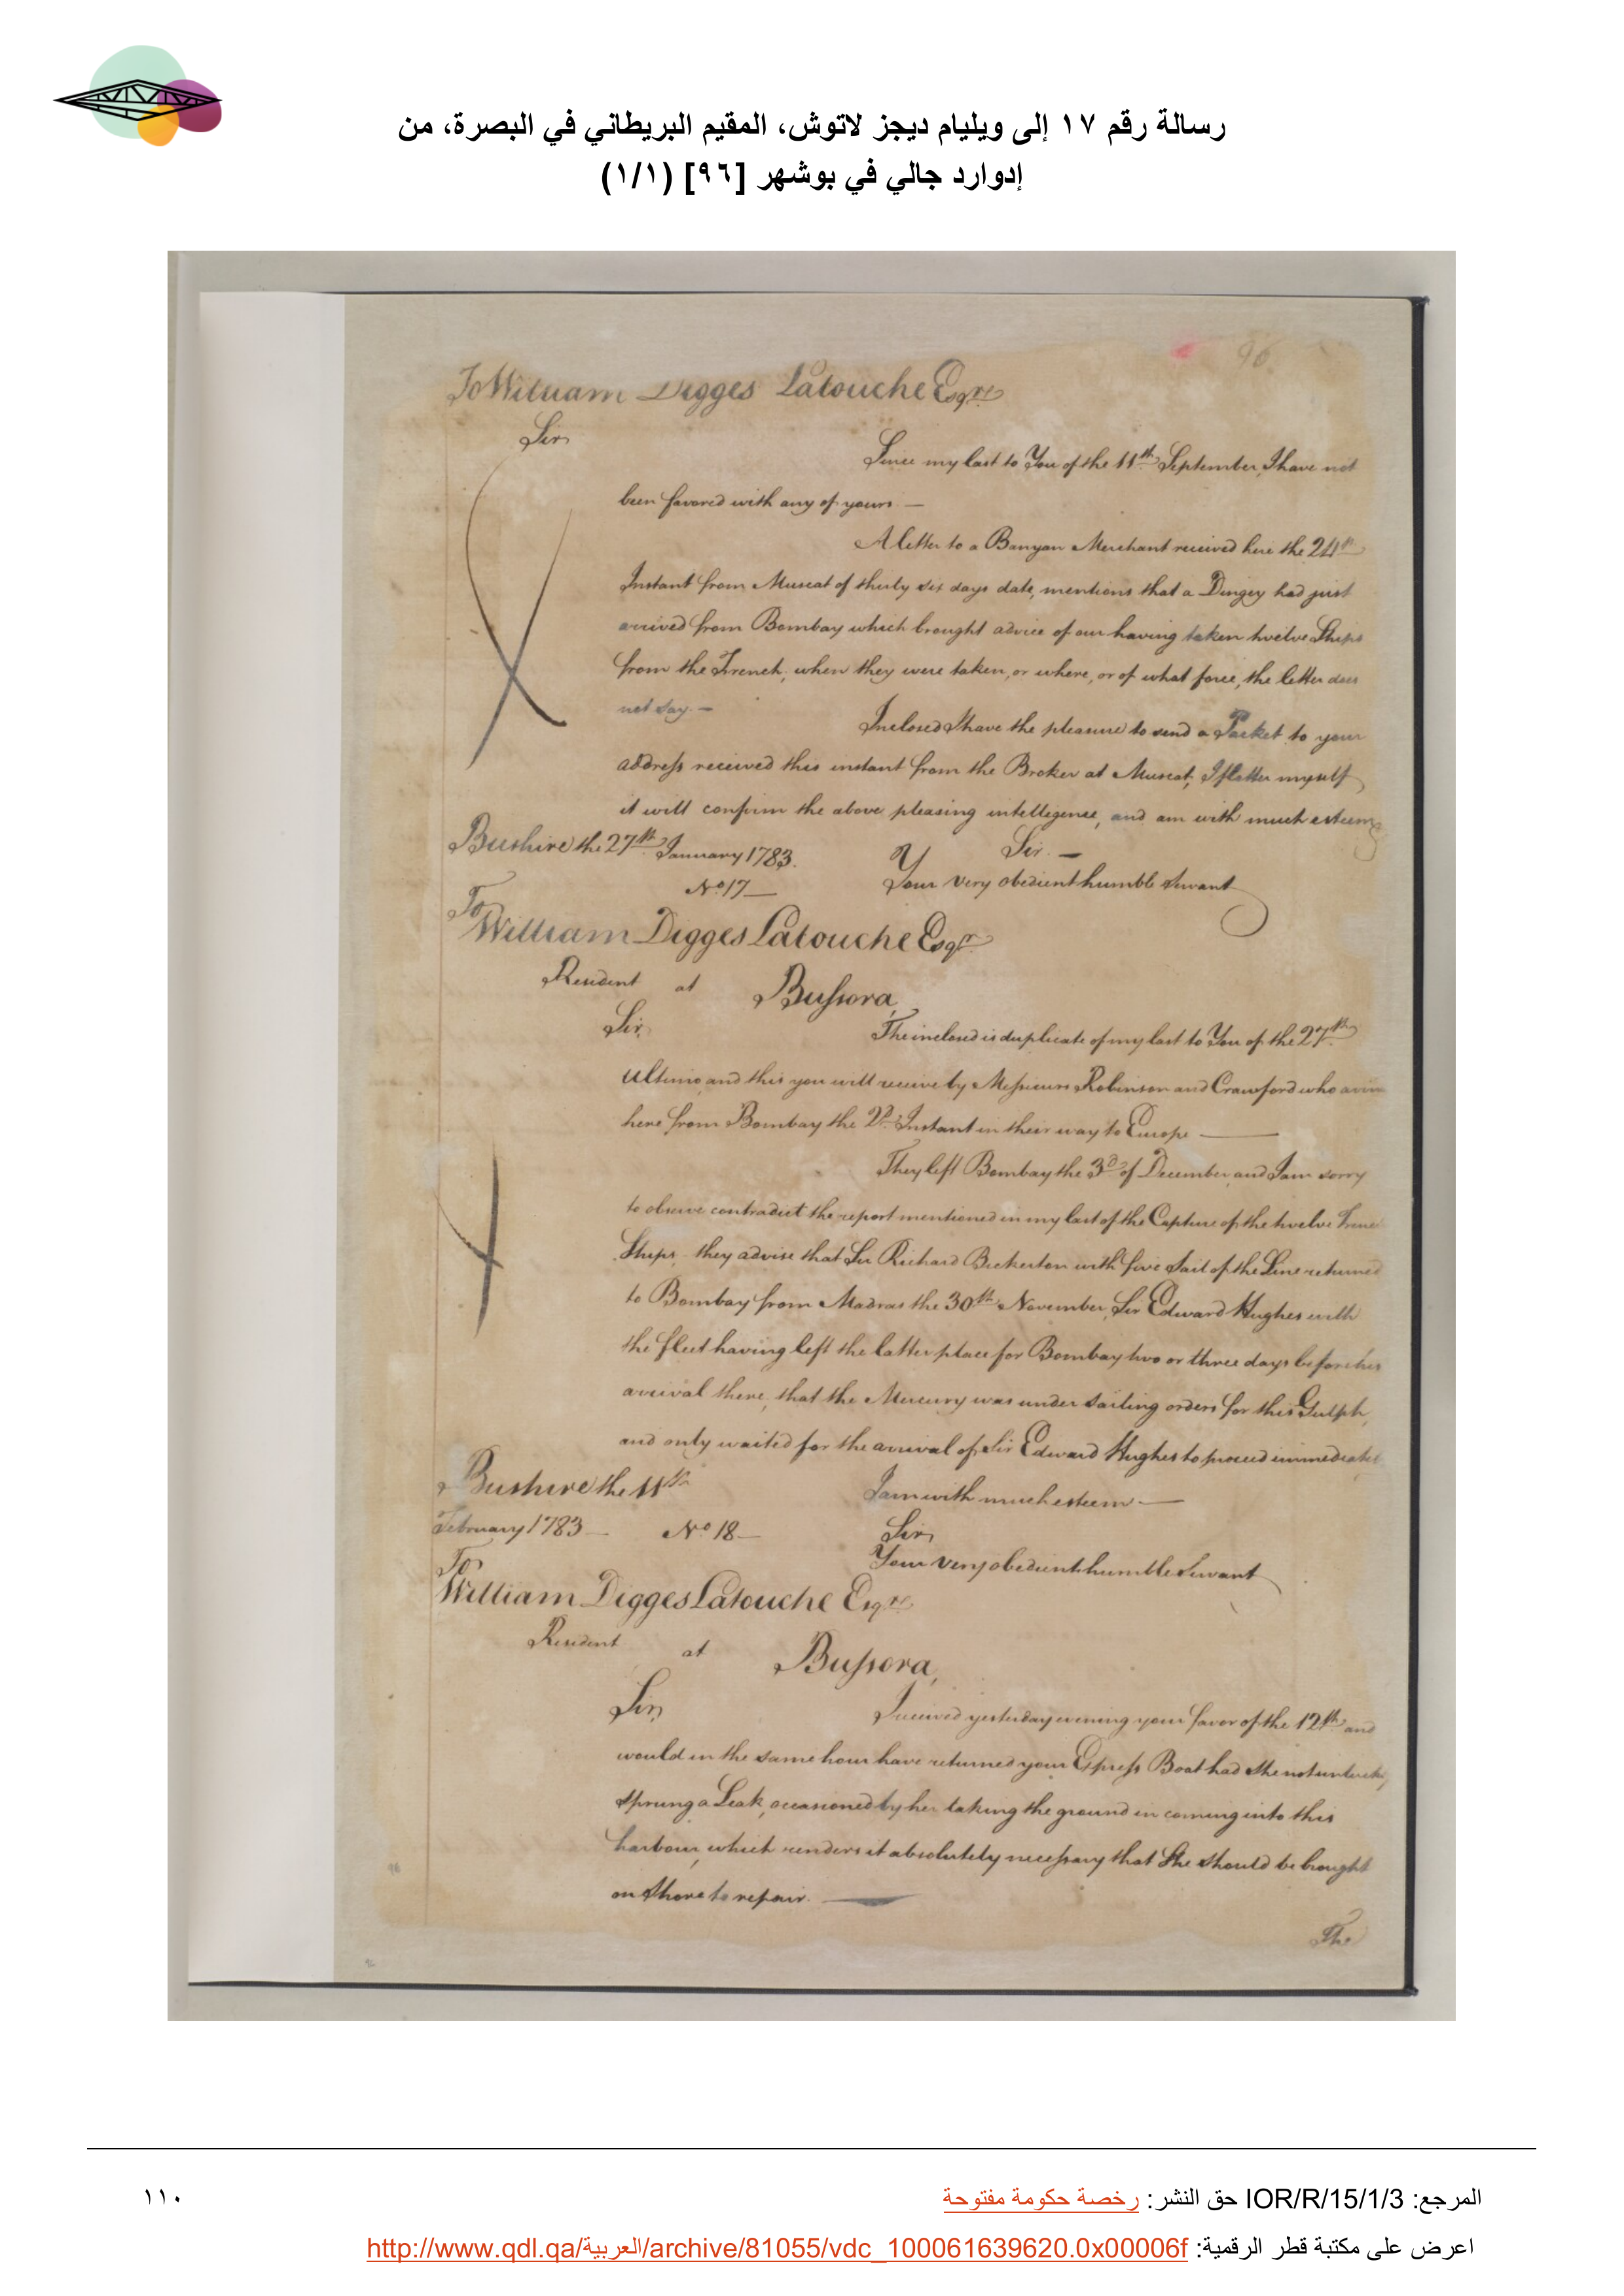 رسالة رقم ١٧ إلى ويليام ديجز لاتوش، المقيم البريطاني في البصرة، من
إدوارد جالي في بوشهر [٩٦] (١/١)
96
To William Digges Latouche Esqre
Sir
Since my last to You of the 11th September, I have not
been favored with any of yours —
A letter to a Banyan Merchant received here the 24th
Instant from Muscat of thirty six days date, mentions that a Dingey had just
arrived from Bombay which brought advice of our having taken twelve Ships
from the French, when they were taken, or where, or of what force, the letter does
not say. —
Inclosed I have the pleasure to send a Packet to your
address received this instant from the Broker at Muscat, I flatter myself
it will confirm the above pleasing intelligence, and am with much esteem
Sir. —
Bushire the 27th January 1783.
Your very obedient humble Servant
No 17 —
To
William Digges Latouche Esqr
Resident at Bussora,
Sir,
The inclosed is duplicate of my last to You of the 27th
Ultimo, and this you will receive by Messieurs Robinson and Crawford who
here from Bombay the 2d. Instant in their way to Europe —
They left Bombay the 3d of December, and I am sorry
to observe contradict the report mentioned in my last of the Capture of the twelve
Ships, they advise that Sir Richard Bickerton with five Sail of the Line returned
to Bombay from Madras the 30th November, Sir Edward Hughes with
the fleet having left the latter place for Bombay two or three days before his
arrival there, that the Mercury was under sailing orders for this Gulph,
and only waited for the arrival of Sir Edward Hughes to proceed
I am with much esteem —
Bushire the 11th
February 1783 — No 18 —
Sir,
Your very obedient humble Servant
To
William Digges Latouche Esqre
Resident at Bussora,
Sir,
I received yesterday evening your favor of the 12th and
would in the same hour have returned your Express Boat had She not
sprung a Leak, occasioned by her taking the ground in coming into this
harbour, which renders it absolutely necessary that She should be brought
on Shore to repair. —
The
المرجع: IOR/R/15/1/3 حق النشر: رخصة حكومة مفتوحة
١١٠
اعرض على مكتبة قطر الرقمية: http://www.qdl.qa/العربية/archive/81055/vdc_100061639620.0x00006f